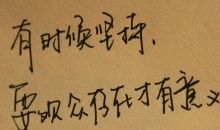 有时候坚持，
要观众存在才有意义